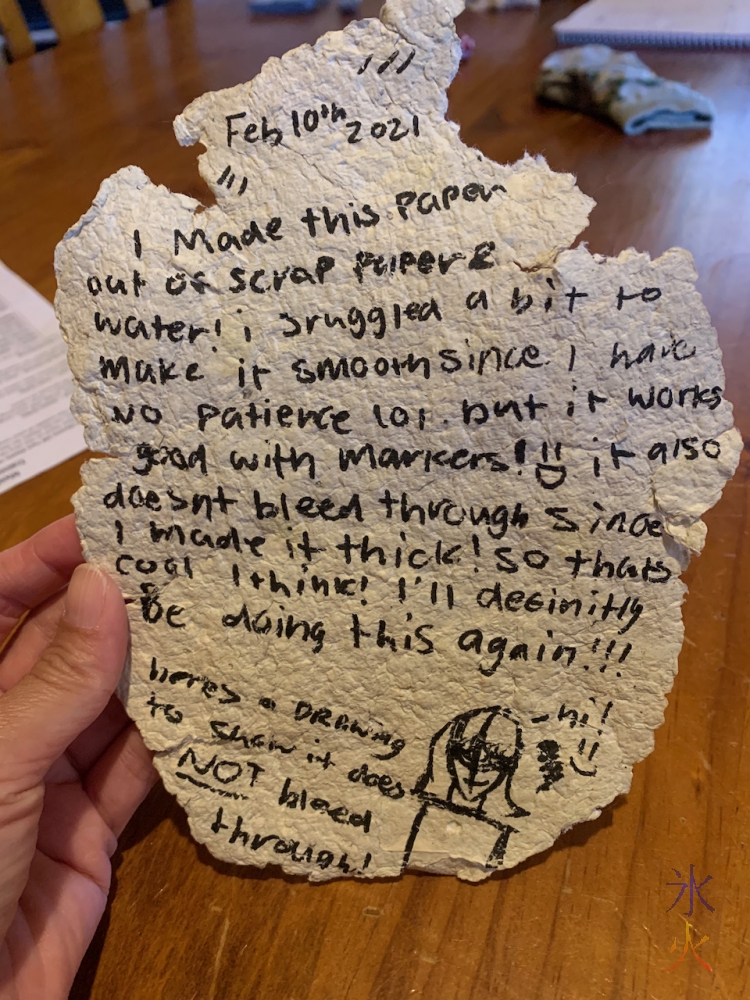 Feb 10th 2021
I Made this paper
out of scrap paper &
water! i sruggled a bit to
make it smooth since I have
no patience lol. but it works
good with markers! it also
doesnt bleed through since
I made it thick! so thats
cool I think! I'll definitly
be doing this again!!!
heres a DRAWING
to show it does
NOT bleed
through!
-hi!
氷
火